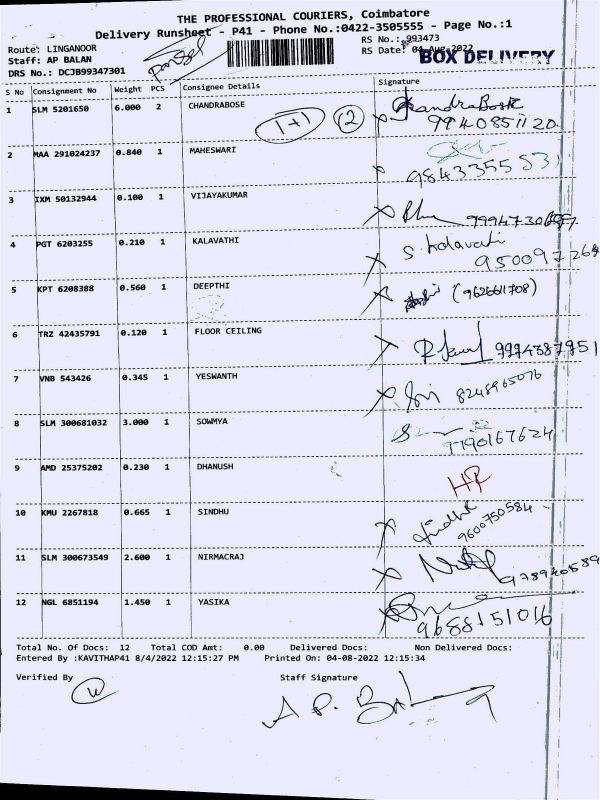 THE PROFESSIONAL COURIERS, Coimbatore
Delivery Runsheet - P41 - Phone No.:0422-3505555 - Page No.:1
Route: LINGANOOR
RS No.: 993473
Staff: AP BALAN
RS Date: 04-Aug-2022
BOX DELIVERY
DRS No.: DCJB99347301
S No Consignment No Weight PCS Consignee Details Signature
1 SLM 5201650 6.000 2 CHANDRABOSE 1+1 2 X ChandraBose
9940851120
2 MAA 291024237 0.840 1 MAHESWARI
9843355531
3 IXM 50132944 0.100 1 VIJAYAKUMAR X
4 PGT 6203255 0.210 1 KALAVATHI X S. Kalavathi
950097269
5 KPT 6208388 0.560 1 DEEPTHI X (9626611708)
6 TRZ 42435791 0.120 1 FLOOR CEILING 9994387951
7 VNB 543426 0.345 1 YESWANTH X 8248965076
8 SLM 300681032 3.000 1 SOWMYA
7790167624
9 AMD 25375202 0.230 1 DHANUSH
10 KMU 2267818 0.665 1 SINDHU X Sindhu
9600750584
11 SLM 300673549 2.600 1 NIRMACRAJ X
978940589
12 NGL 6851194 1.450 1 YASIKA X
9688151016
Total No. Of Docs: 12 Total COD Amt: 0.00 Delivered Docs: Non Delivered Docs:
Entered By :KAVITHAP41 8/4/2022 12:15:27 PM Printed On: 04-08-2022 12:15:34
Verified By Staff Signature
A P. Balan